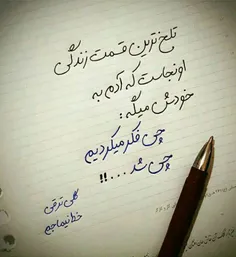 تلخ‌ترین قسمت زندگی
اونجاست که آدم به
خودش میگه:
چی فکر میکردیم
چی شد ...!!
گلی ترقی
خط نیما جم